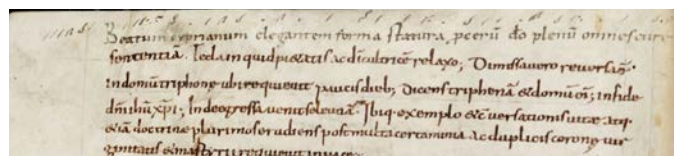 Beatum cyprianum elegantem forma statura, pcerū dō plenū omnes
sententiā. Teclam quid pietatis ac dicultricē relaxo; Dimissa vero reversa ē
In domū triphone ubi requievit paucis dieb; dicens triphenā & domū eī; in fide
dnī ihū xpi; Inde egressa venit seleuciā. Ibiq exemplo & cversationis vitae atq
& iā doctrine plurimos erudiens post multa certamina ac duplicis corone vir
ginitatis & martyrii requievit in pace;